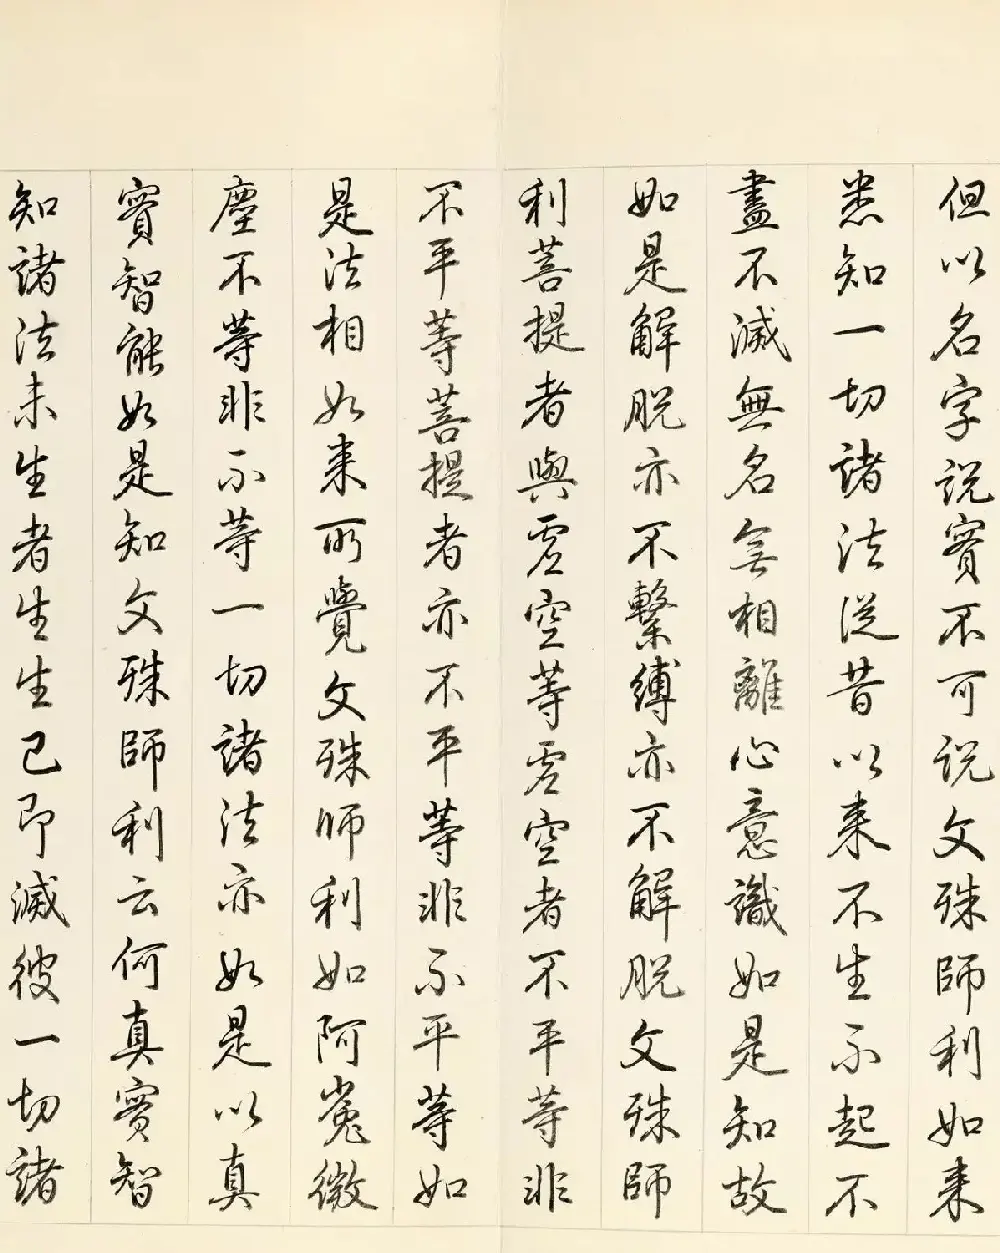 但以名字説實不可説文殊師利如来
悉知一切諸法從昔以来不生不起不
盡不滅無名無相離心意識如是知故
如是解脱亦不繫縛亦不解脱文殊師
利菩提者與虚空等虚空者不平等非
不平等菩提者亦不平等非不平等如
是法相如来所覺文殊師利如阿㝹微
塵不等非不等一切諸法亦如是以真
實智能如是知文殊師利云何真實智
知諸法未生者生生已即滅彼一切諸